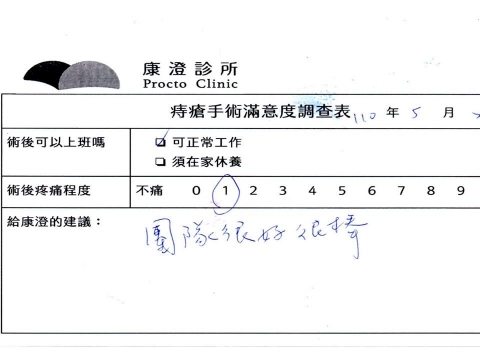 康澄診所
Procto Clinic
痔瘡手術滿意度調查表 110 年 5 月
術後可以上班嗎 可正常工作
須在家休養
術後疼痛程度 不痛 0 1 2 3 4 5 6 7 8 9
給康澄的建議：
團隊很好很棒